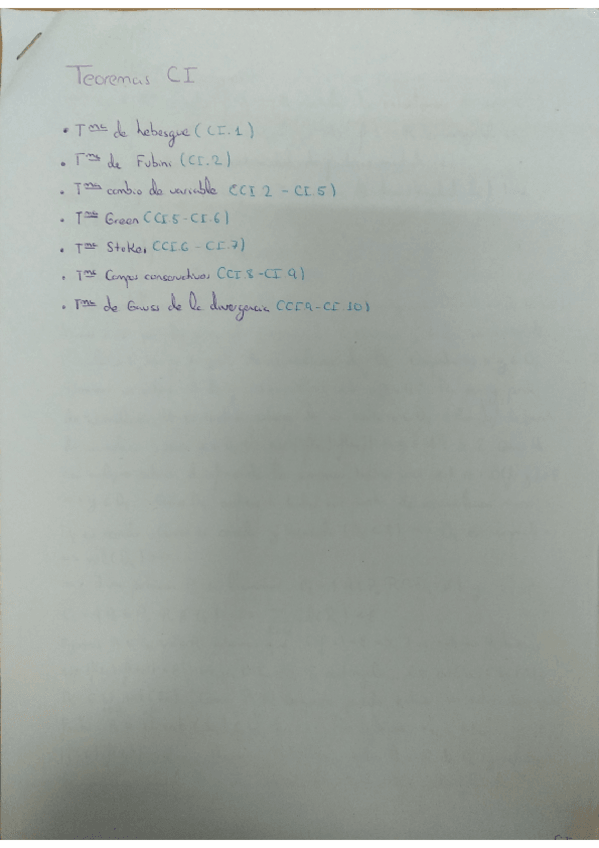 Teoremas CI
• Tma de Lebesgue (CI.1)
• Tma de Fubini (CI.2)
• Tma cambio de variable (CI 2 - CI.5)
• Tma Green (CI 5 - CI.6)
• Tma Stokes (CI.6 - CI.7)
• Tma Campos conservativos (CI 8 - CI 9)
• Tma de Gauss de la divergencia (CI 9 - CI 10)